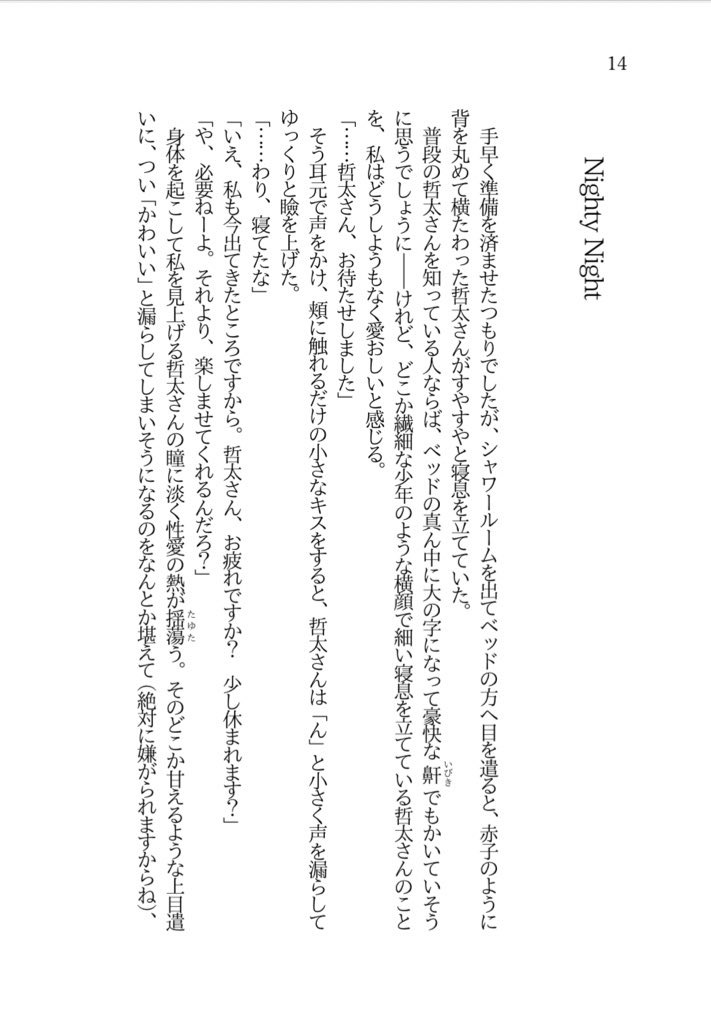 14
Nighty Night
手早く準備を済ませたつもりでしたが、シャワールームを出てベッドの方へ目を遣ると、赤子のように
背を丸めて横たわった哲太さんがすやすやと寝息を立てていた。
普段の哲太さんを知っている人ならば、ベッドの真ん中に大の字になって豪快な鼾でもかいていそう
いびき
に思うでしょうに――けれど、どこか繊細な少年のような横顔で細い寝息を立てている哲太さんのこと
を、私はどうしようもなく愛おしいと感じる。
「……哲太さん、お待たせしました」
そう耳元で声をかけ、頬に触れるだけの小さなキスをすると、哲太さんは「ん」と小さく声を漏らして
ゆっくりと瞼を上げた。
「……わり、寝てたな」
「いえ、私も今出てきたところですから。哲太さん、お疲れですか？　少し休まれます？」
「や、必要ねーよ。それより、楽しませてくれるんだろ？」
身体を起こして私を見上げる哲太さんの瞳に淡く性愛の熱が揺蕩う。そのどこか甘えるような上目遣
たゆた
いに、つい「かわいい」と漏らしてしまいそうになるのをなんとか堪えて（絶対に嫌がられますからね）、